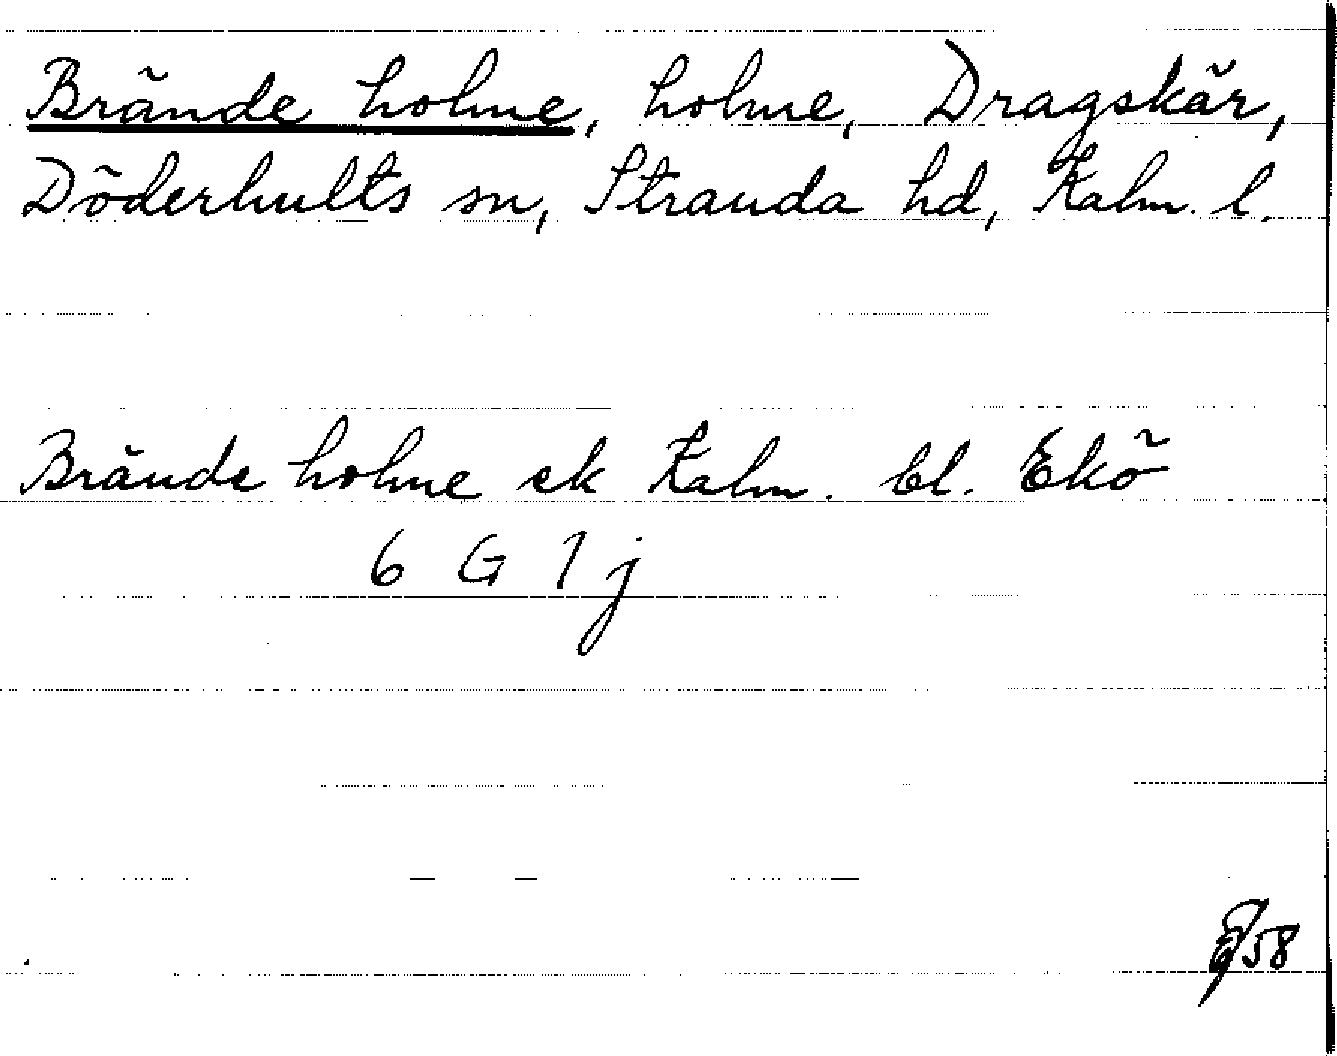 Brände holme, holme, Dragskär,
Döderhults sn, Stranda hd, Kalm. l.
Brände holme ek Kalm. bl. Ekö
6 G 1 j
58